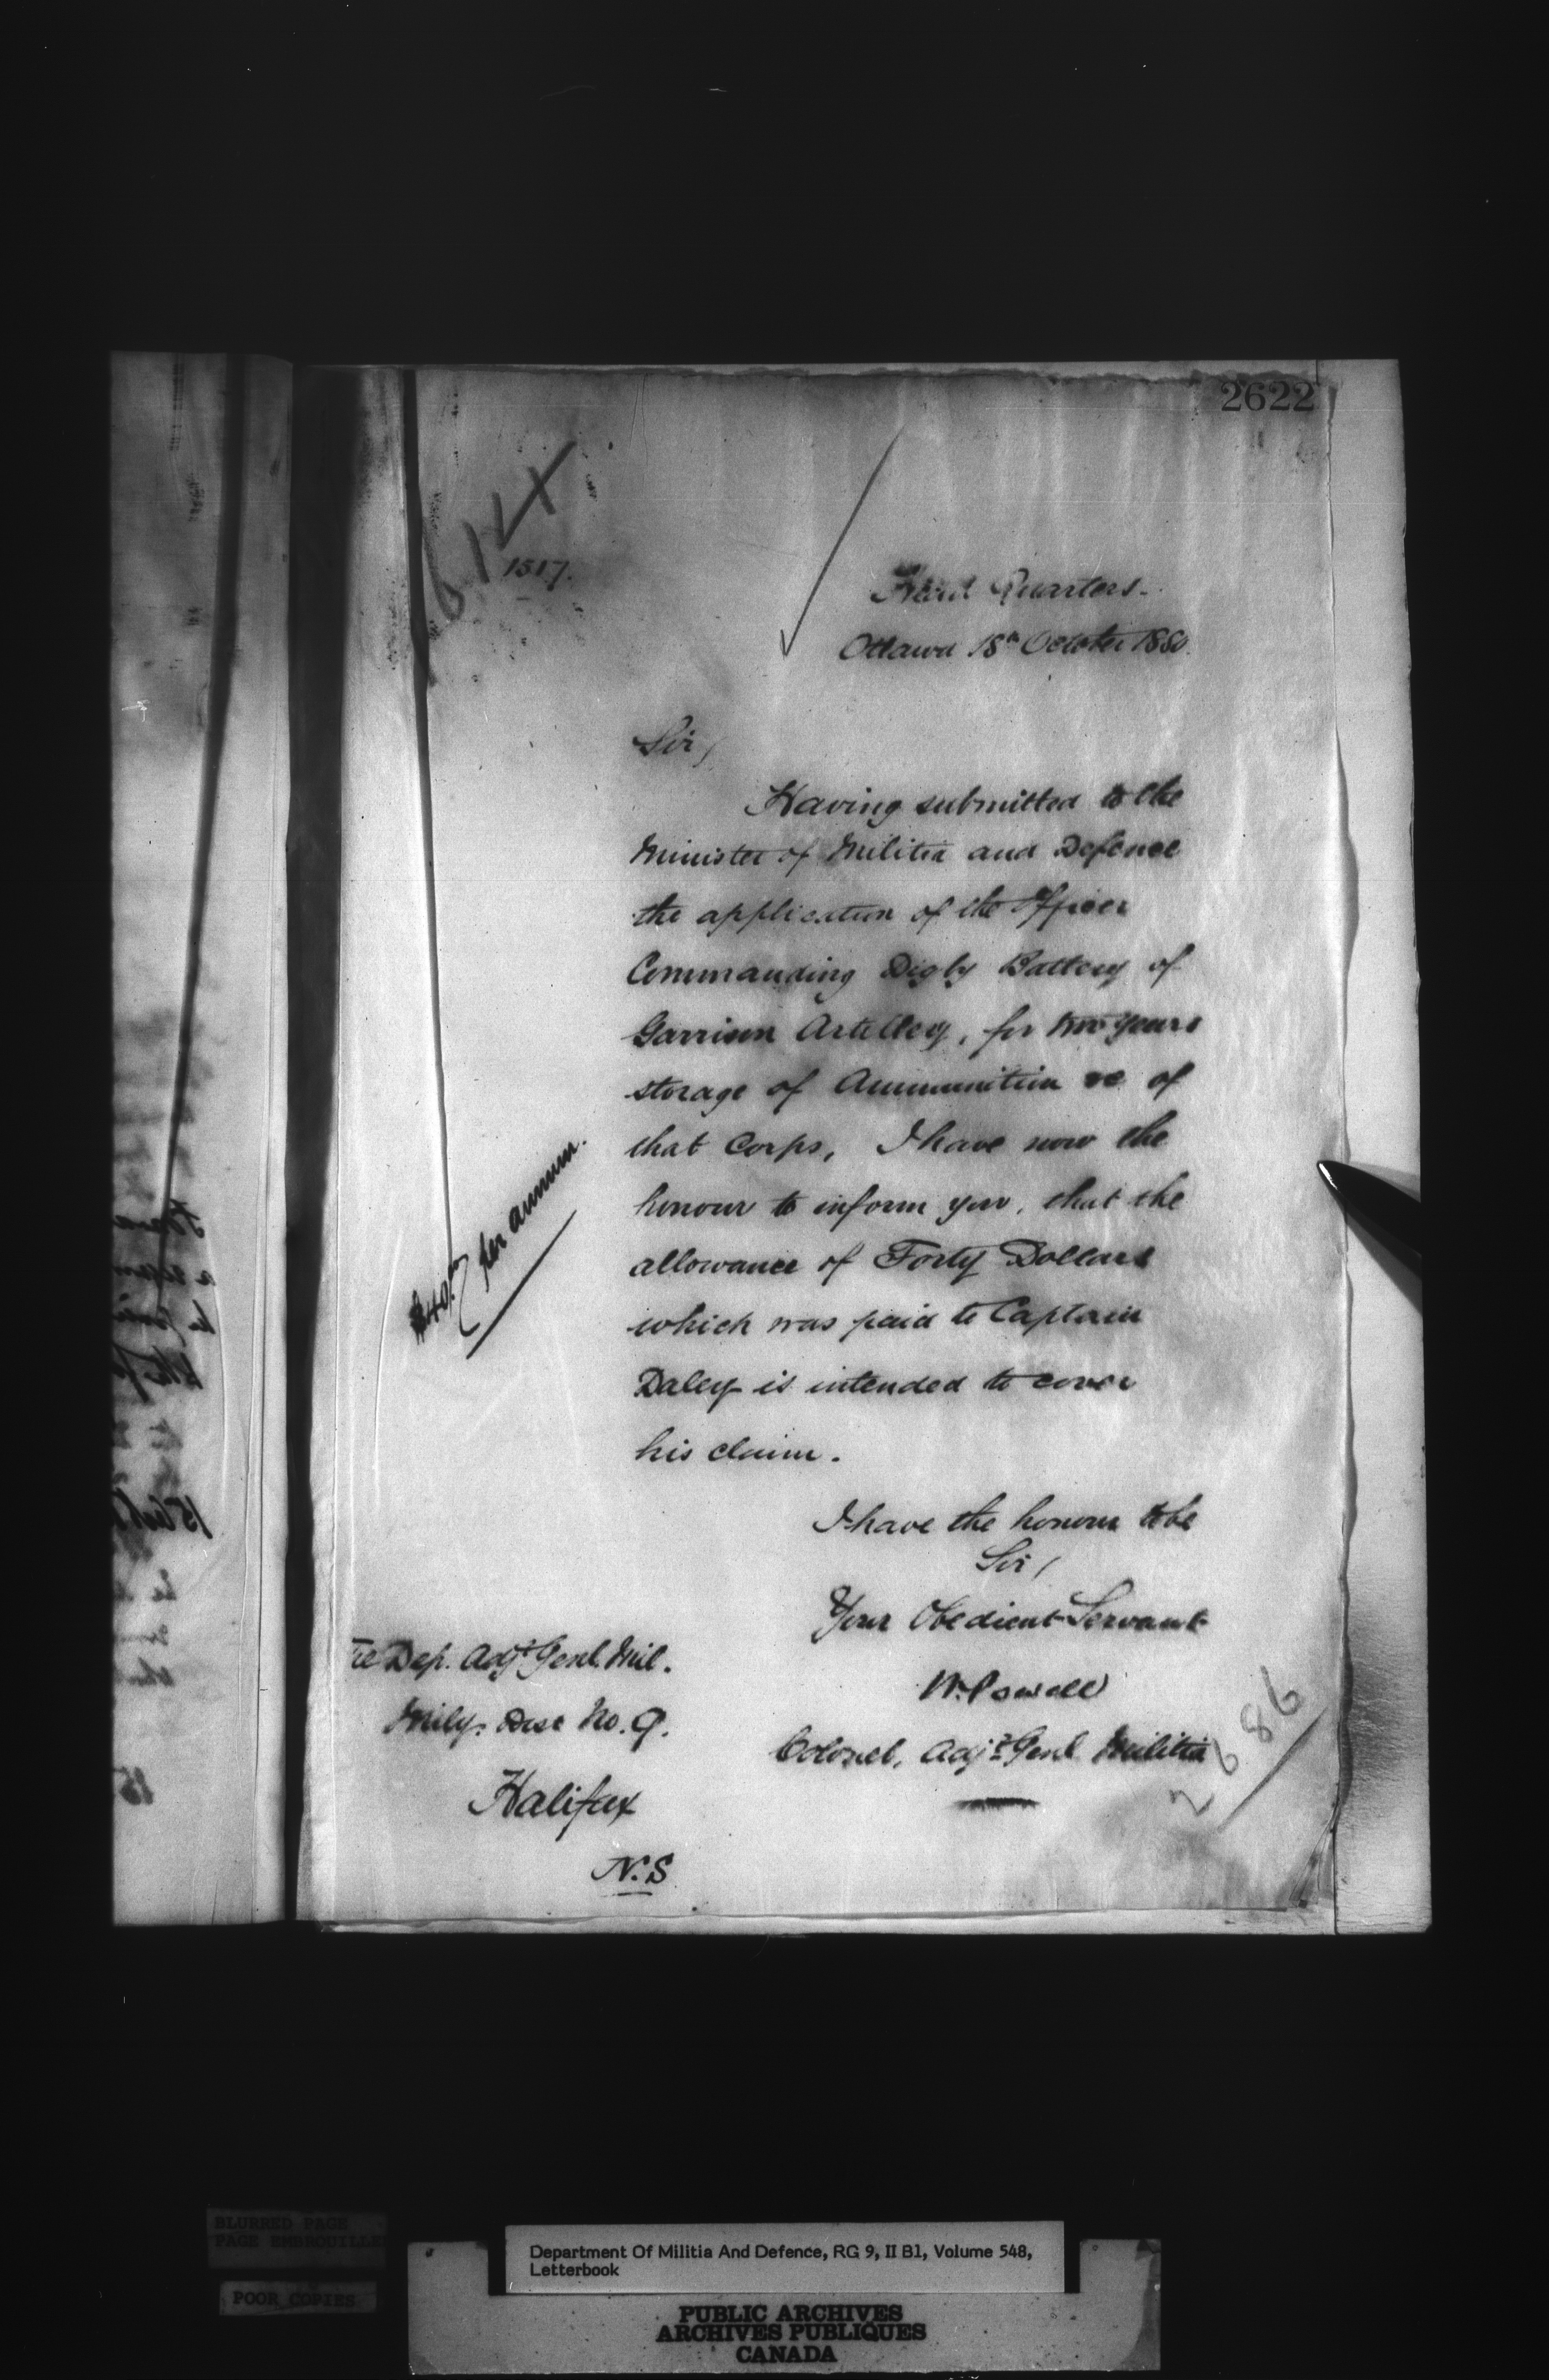 2622
1517.
Head Quarters.
Ottawa 18th October 1880.
Sir,
Having submitted to the
Minister of Militia and Defence
the application of the Officer
Commanding Digby Battery of
Garrison Artillery, for two years
storage of Ammunition &c of
that Corps, I have now the
honour to inform you, that the
allowance of Forty Dollars
which was paid to Captain
Daley is intended to cover
his claim.
$40.00 per annum.
I have the honour to be
Sir,
Your Obedient Servant
W. Powell
Colonel, Adjt. Genl. Militia
The Dep. Adjt. Genl. Mil.
Mily. Dist No. 9.
Halifax
N.S
2686
BLURRED PAGE
PAGE EMBROUILLE
POOR COPIES
Department Of Militia And Defence, RG 9, II B1, Volume 548,
Letterbook
PUBLIC ARCHIVES
ARCHIVES PUBLIQUES
CANADA